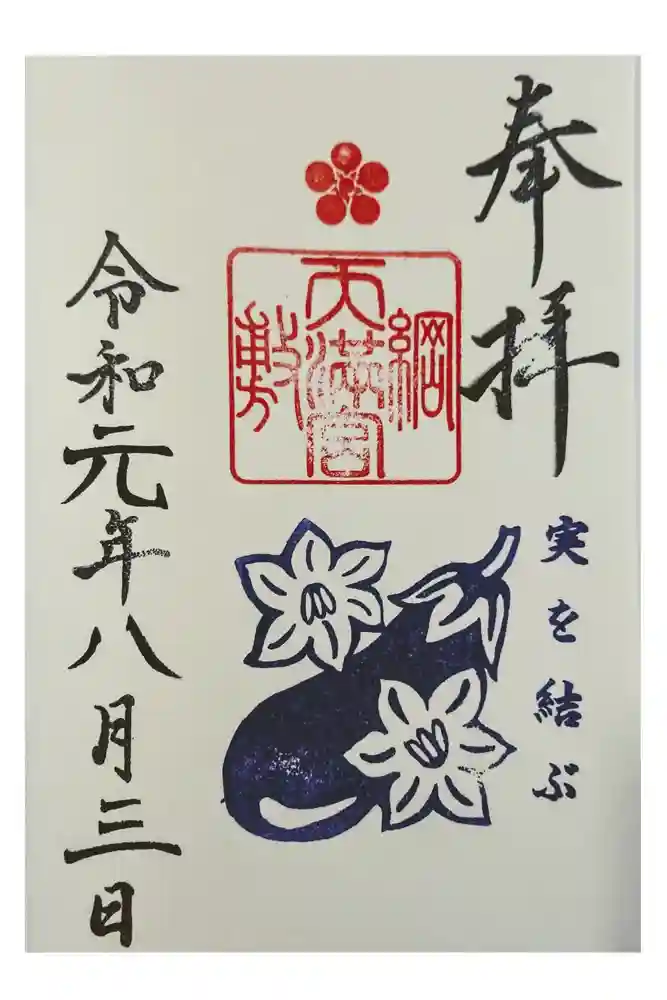 奉拝
実を結ぶ
綱
天満宮
敷
令和元年八月三日